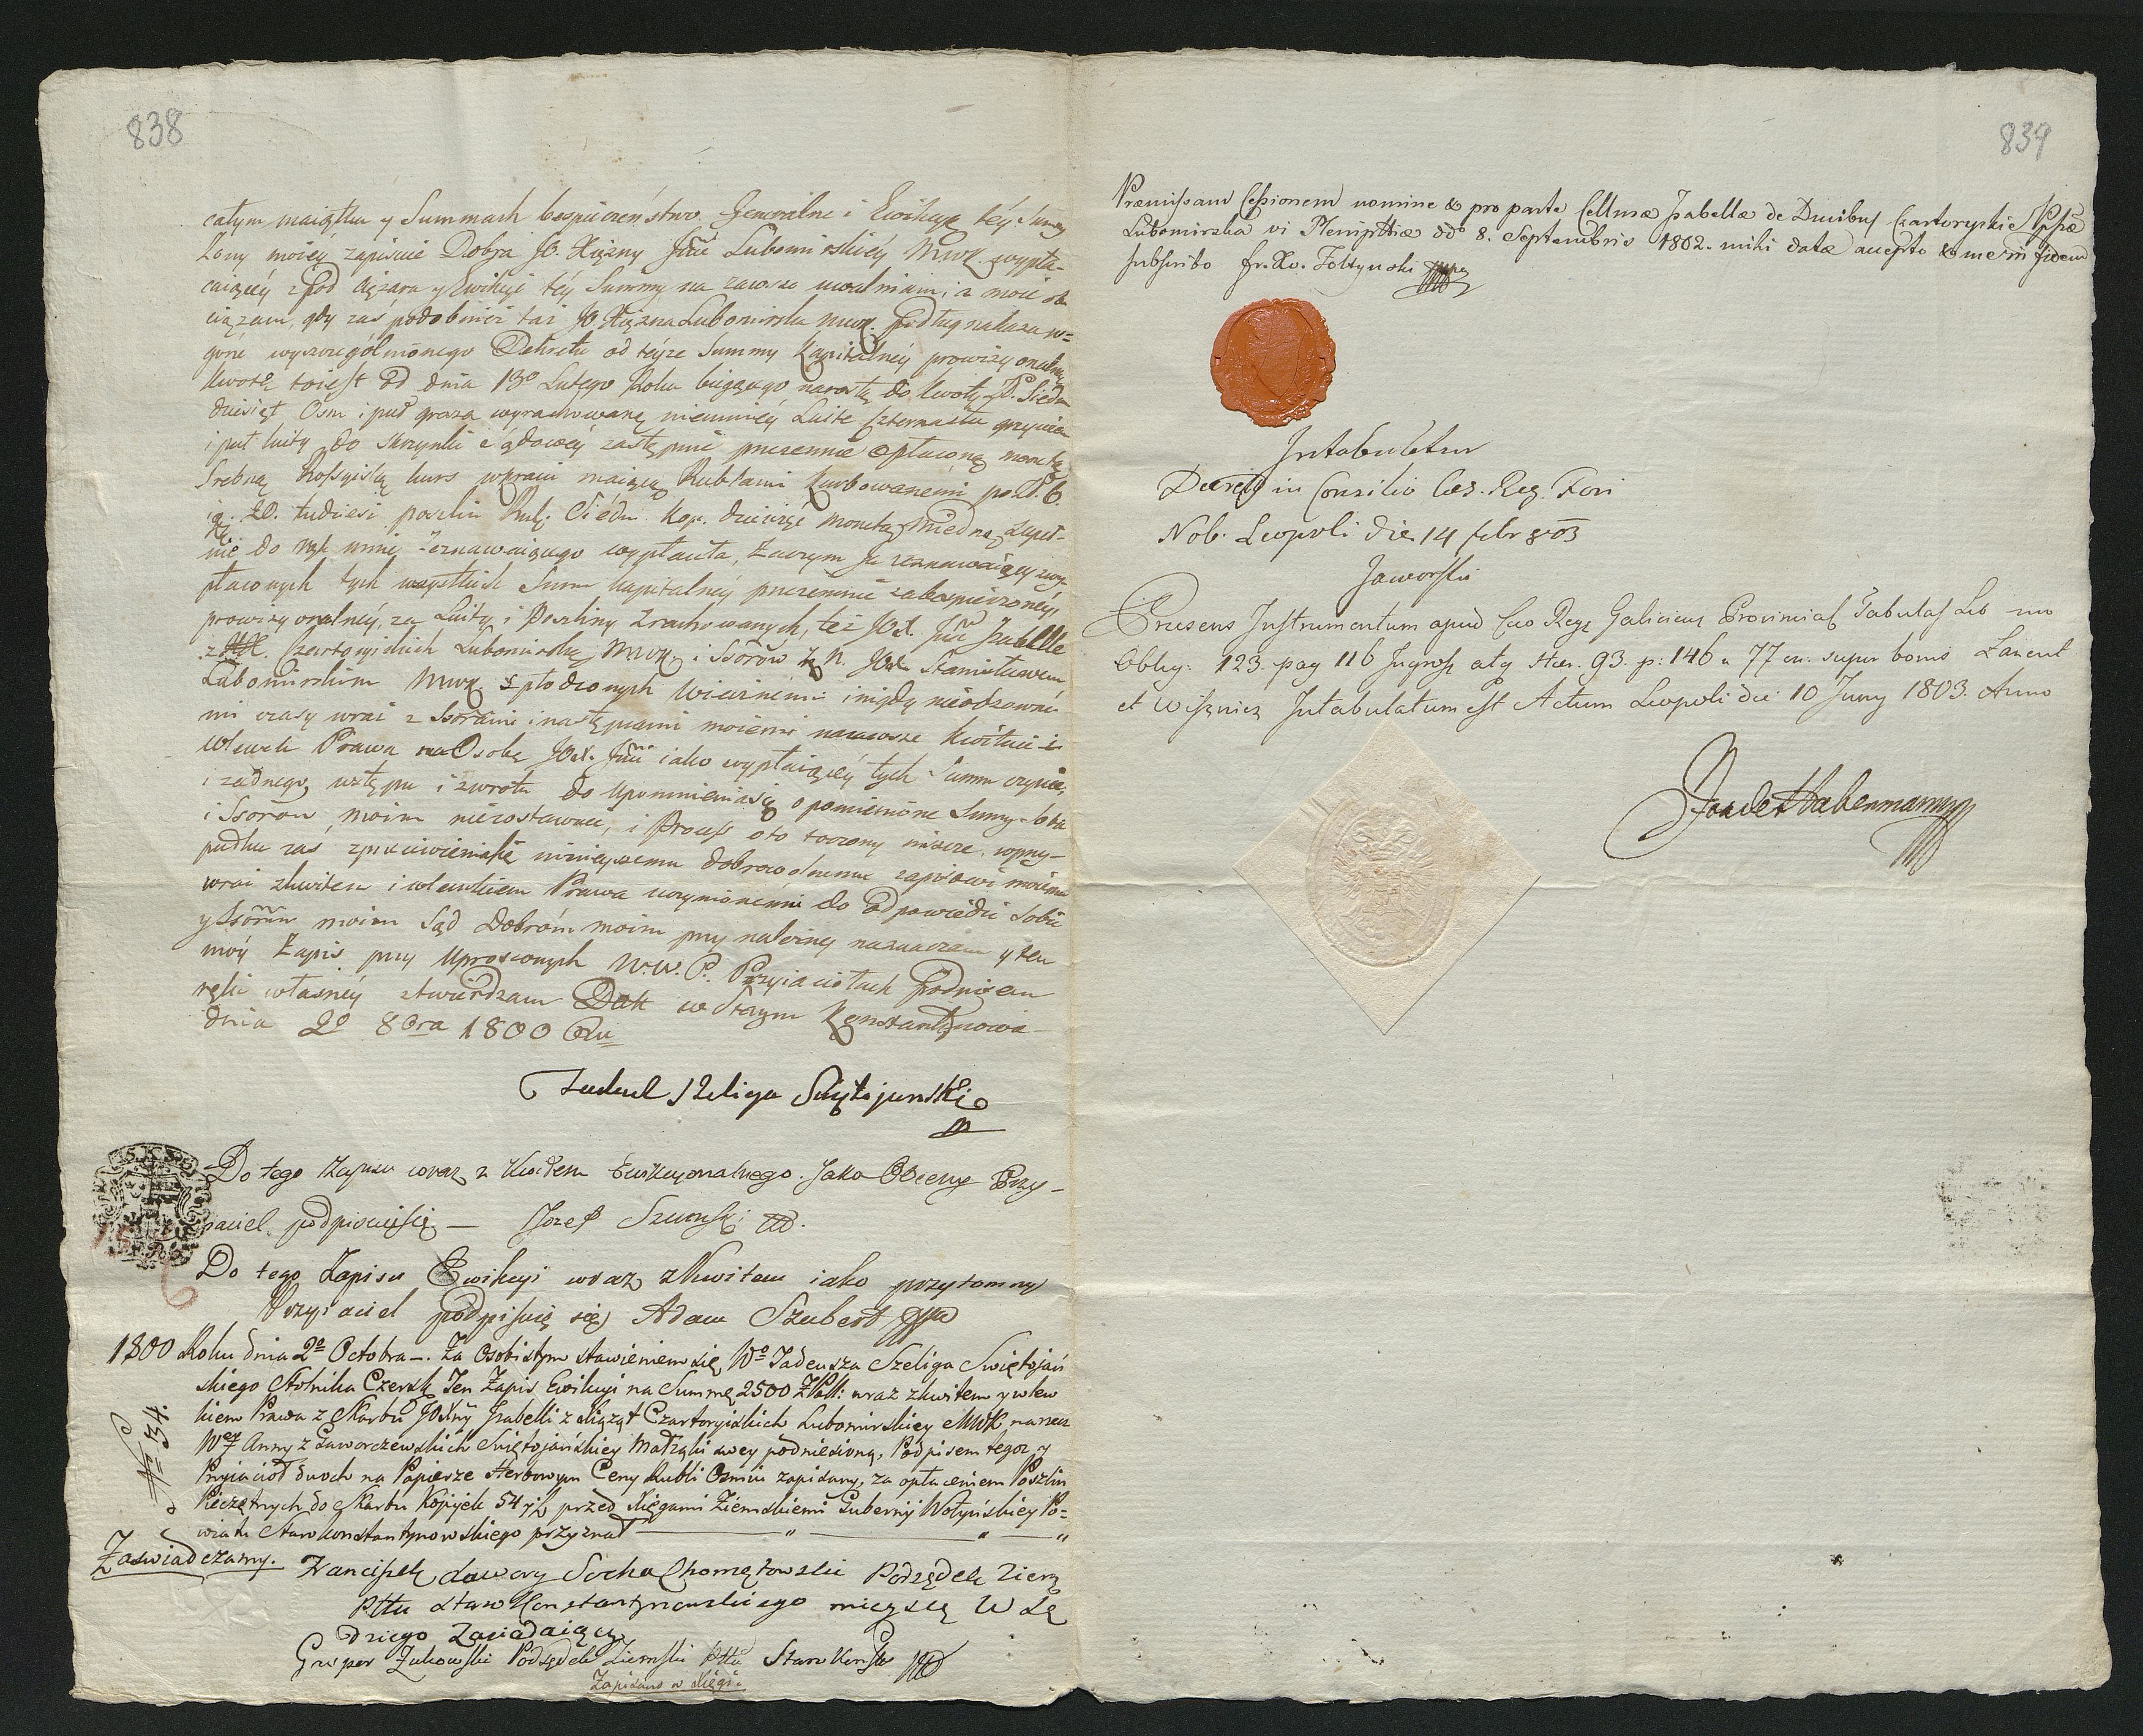 838
całym maiątku y Summach bespieczeństwo Generalne i Ewikcyę téy Summy
Żony moiéy zapisuię Dobra JO. Xiężny Jmć Lubomirskiéy Mwk. wypła-
caiącéy z pod ciężaru y Ewikcyi téy Summy na zawsze uwalniam; a moie ob-
ciążam, gdy zaś podobnież taż JO Xiężna Lubomirska mwk. podług nakazu w-
góre wyszczególnionego Dekretu od teyże Summy Kapitalnéy prowizyonalną
kwotę toiest od dnia 13º Lutego Roku bieżącego narosłą do kwoty ZP. Siedm
dziesiąt Osm i puł grosza wyrachowaną niemniéy Luite czternastu grzywien
i puł luity do skrzynki sądowéy zastępnie przezemnie opłaconą monetą
Srebrną Rossyiską kurs w kraiu maiącą Rublami karbowanemi po ZP. 6.
gr. 20. tudzież poszlin Rub. Siedm Kop. dziewięć monetą miedzną zupeł-
nie do rąk mnie zeznawaiącego wypłaciła, zaczym ja zeznawaiący z wy-
płaconych tych wszystkich Summ kapitalnéy przezemnie zabezpieczonéy
prowizyonalnéy, za Luity i Poszliny zrachowanych, też JOX. Jmć Izabellę
z XX. Czartoryiskich Lubomirską Mwk. i Ssorów z N. JOX Stanisławem
Lubomirskim Mwk. spłodzonych wiecznemi i nigdy nieodzowne-
mi czasy wraz z Ssorami i następcami moiemi nazawsze kwituię i
wlewek Prawa na Osobę JOX. Jmci iako wypłacaiącéy tych Summ czynię,
i żadnego wstępu i zwrotu do upomnienia się o pomienione Summy sobie
i Ssorom moim niezostawuię, i Process oto toczony niszczę, w przy-
padku zaś zprzeciwienia się ninieyszemu dobrowolnemu zapisowi moiemu
wraz z kwitem i wlewkiem Prawa uczynionemi do odpowiedzi sobie
y Ssorom moim Sąd Dobróm moim przynależny naznaczam y ten
móy Zapis przy uproszonych W.W. P. Przyiaciołach Podpisem
ręki własnéy stwierdzam Dtt w Starym Konstantynowie
dnia 2º 8bra 1800 Ru
Tadeusz Szeliga Swiętojanski
mp
Do tego Zapisu wraz z Kwitem Ewikcyonalnego jako Obecny Przy-
iaciel podpisuię się — Jozef
Do tego Zapisu Ewikcyi wraz z Kwitem iako przytomny
Przyiaciel podpisuię się Adam Szubert mp
1800 Roku dnia 2º Octobra —. Za Osobistym stawieniem się Wº Tadeusza Szeliga Swiętojań
skiego Stolnika Czersk: Ten Zapis Ewikcyi na Summę 2500 ZPoll: wraz z kwitem y wlew
kiem Prawa z Skarbu JOXny Izabelli z Xiążąt Czartoryiskich Lubomirskiey MWK na rzecz
Wey Anny z Jaworczewskich Swiętojańskiey Małżąki swey podniesioną, Podpisem tegoż y
Przyiacioł dwoch na Papierze Herbowym Ceny Rubli Osmiu zapisany, za opłaceniem Poszlin
Pieczętnych do Skarbu Kopijek 54 y ½ przed Xięgami Ziemskiemi Gubernij Wołyńskiey Po=
wiatu Starokonstantynowskiego przyznał
Nº 34.
Zaswiadczamy.
Franciszek Xawery Socha Chomętowski Podsędek Ziem
Pttu StaroKonstantynowskiego mieysce W Sę
dziego Zasiadaiący
Gasper Żukowski Podsędek Ziemski Pttu StaroKonst mp
Zapisano w Xięgi
839
Præmissam Cessionem nomine & pro parte Cellmæ Isabellæ de Ducibus Czartoryskie Ppssæ
Lubomirska vi Plenipttiæ ddº 8. Septembris 1802. mihi datæ accepto & in rei fidem
subscribo Fr. Xv. Foltynski mp
Intabuletur
Decreto in Consilio Cæs. Reg. Fori
Nob. Leopoli die 14 febr 803
Jaworski
Præsens Instrumentum apud Cæo Regs Galiciens Provincial Tabulas Lib no
Obbg: 123. pag 116 Ingross atq Hær. 93. p: 146 n 77 on. super bonis Łancut
et Wisznicz Intabulatum est Actum Leopoli die 10 Juny 1803. Anno
Habermann mp